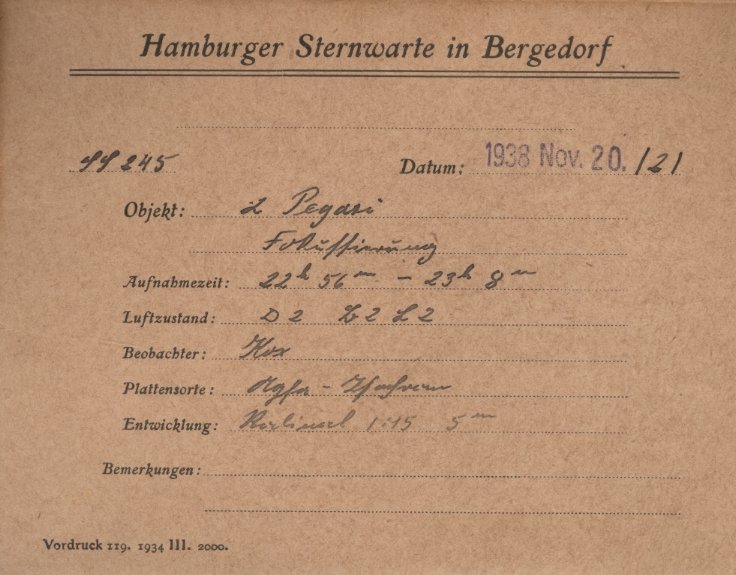 Hamburger Sternwarte in Bergedorf
SS 245 Datum: 1938 Nov. 20. /21
Objekt: α Pegasi
Fokussierung
Aufnahmezeit: 22h 56m - 23h 8m
Luftzustand: D 2 Z 2 L 2
Beobachter: Kox
Plattensorte: Agfa - Isochrom
Entwicklung: Rodinal 1:15 5m
Bemerkungen:
Vordruck 119. 1934 III. 2000.